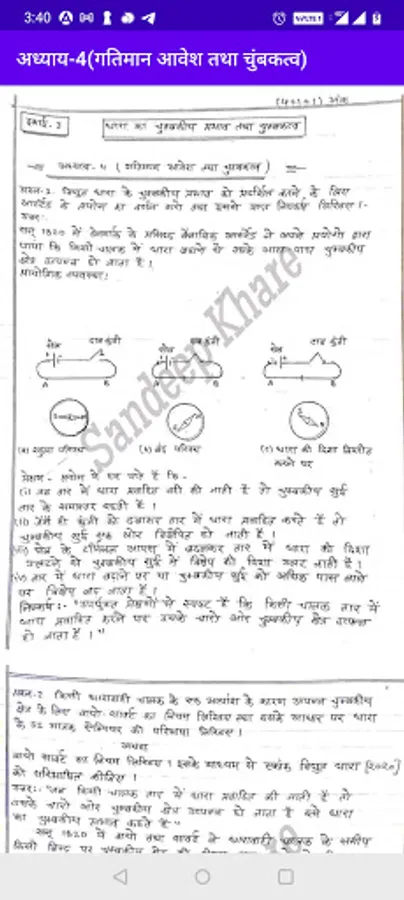 3:40
अध्याय-4(गतिमान आवेश तथा चुंबकत्व)
इकाई-3
धारा का चुम्बकीय प्रभाव तथा चुम्बकत्व
अध्याय-4 (गतिमान आवेश तथा चुम्बकत्व)
विद्युत धारा के चुम्बकीय प्रभाव को प्रदर्शित करने के लिए
उत्तर:-
सन् 1820 में डेनमार्क के प्रसिद्ध वैज्ञानिक ने अपने प्रयोगों द्वारा
पाया कि किसी चालक में धारा बहाने से उसके आस-पास चुम्बकीय
क्षेत्र उत्पन्न हो जाता है।
प्रायोगिक व्यवस्था:
सेल दाब कुंजी
सेल दाब कुंजी
सेल दाब कुंजी
A B
A B
A B
(a) खुला परिपथ
(b) बंद परिपथ
(c) धारा की दिशा विपरीत
करने पर
प्रेक्षण- प्रयोग में हम पाते हैं कि-
(i) जब तार में धारा प्रवाहित नहीं की जाती है तो चुम्बकीय सुई
तार के समान्तर रहती है।
(ii) जैसे ही कुंजी को दबाकर तार में धारा प्रवाहित करते हैं तो
चुम्बकीय सुई एक ओर विक्षेपित हो जाती है।
(iii) सेल के टर्मिनल आपस में बदलकर तार में धारा की दिशा
पलटने से चुम्बकीय सुई में विक्षेप की दिशा बदल जाती है।
(iv) तार में धारा बढ़ाने पर या चुम्बकीय सुई को अधिक पास लाने
पर विक्षेप बढ़ जाता है।
निष्कर्ष:- "उपर्युक्त प्रेक्षणों से स्पष्ट है कि किसी चालक तार में
धारा प्रवाहित करने पर उसके चारों ओर चुम्बकीय क्षेत्र उत्पन्न
हो जाता है।"
Sandeep Khare
प्रश्न-2 किसी धारावाही चालक के अल्पांश के कारण उत्पन्न चुम्बकीय
क्षेत्र के लिए बायो-सावर्ट का नियम लिखिए तथा इसके आधार पर धारा
के SI मात्रक ऐम्पियर की परिभाषा लिखिए।
अथवा
बायो सावर्ट का नियम लिखिए। इसके माध्यम से एकांक विद्युत धारा [2020]
को परिभाषित कीजिए।
उत्तर:- जब किसी चालक तार में धारा प्रवाहित की जाती है तो
उसके चारों ओर चुम्बकीय क्षेत्र उत्पन्न हो जाता है इसे धारा
का चुम्बकीय प्रभाव कहते हैं"
सन् 1820 में बायो तथा सावर्ट ने धारावाही चालक के समीप